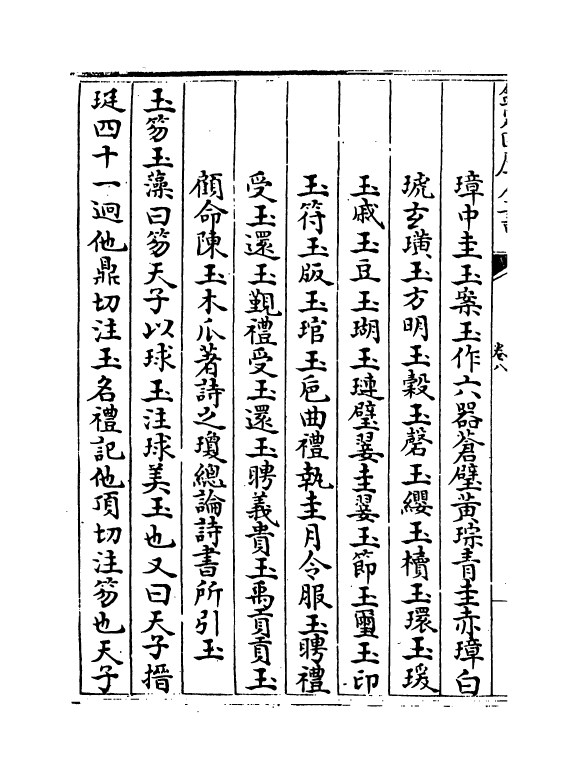 欽定四庫全書
卷八
璋中圭玉案玉作六器蒼璧黄琮青圭赤璋白
琥玄璜玉方明玉榖玉磬玉纓玉櫝玉環玉瑗
玉戚玉豆玉瑚玉璉璧翣圭翣玉節玉璽玉印
玉符玉版玉琯玉巵曲禮執圭月令服玉聘禮
受玉還玉覲禮受玉還玉聘義貴玉禹貢貢玉
顧命陳玉木瓜著詩之瓊總論詩書所引玉
玉笏玉藻曰笏天子以球玉注球美玉也又曰天子搢
珽四十一迥他鼎切注玉名禮記他頂切注笏也天子